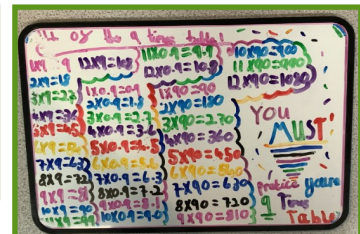 All of the 9 times tables!
1x9=9
2x9=18
3x9=27
4x9=36
5x9=45
7x9=63
8x9=72
9x9=81
10x9=90
11x9=99
12x9=108
1x0.9=0.9
2x0.9=1.8
3x0.9=2.7
4x0.9=3.6
5x0.9=4.5
6x0.9=5.4
7x0.9=6.3
8x0.9=7.2
9x0.9=8.1
10x0.9=9.0
11x0.9=9.9
12x0.9=10.8
1x90=90
2x90=180
3x90=270
4x90=360
5x90=450
6x90=540
7x90=630
8x90=720
9x90=810
10x90=900
11x90=990
12x90=1080
YOU
MUST!
pratice youre
9 Times
Table